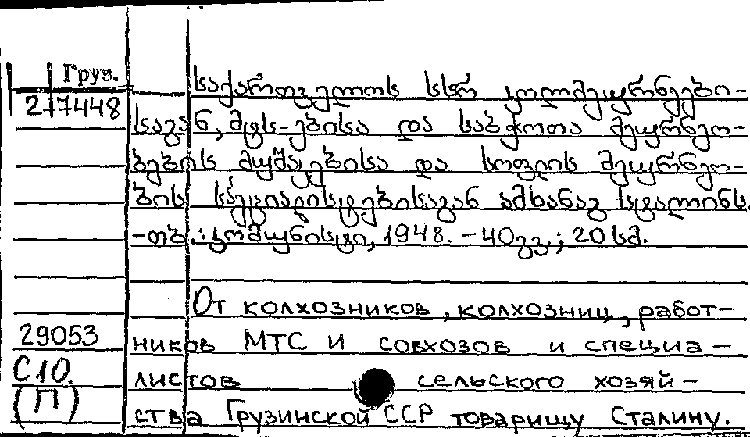 Груз.
217448
საქართველოს სსრ კოლმეურნეები-
საგან, მტს-ებისა და საბჭოთა მეურნეო-
ბების მუშაკებისა და სოფლის მეურნეო-
ბის სპეციალისტებისაგან ამხანაგ სტალინს.
-თბ.: კომუნისტი, 1948. - 40გვ.; 20 სმ.
От колхозников, колхозниц, работ-
29053 ников МТС и совхозов и специа-
С10 листов сельского хозяй-
(П) ства Грузинской ССР товарищу Сталину.